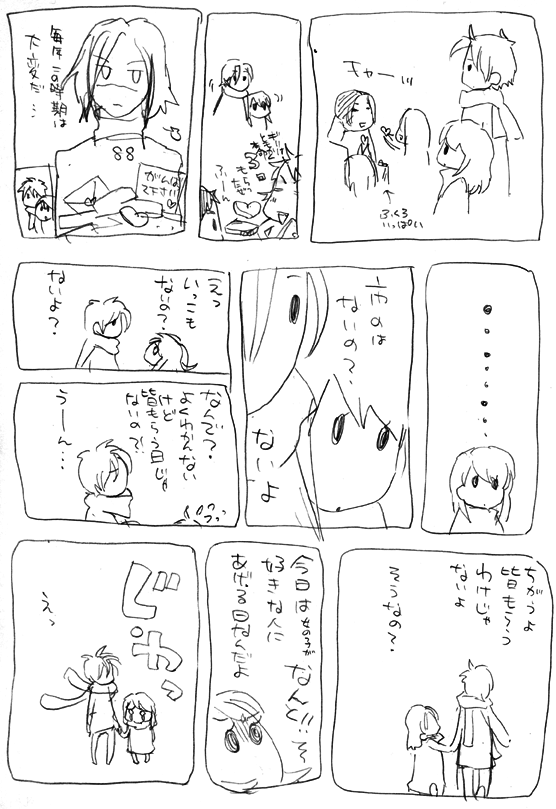 キャーッ
ふくろ
いっぱい
毎年この時期は
大変だ…
88
がんば
・・・・・・・
市のは
ないの？
ないよ
えっ
いっこも
ないの？
ないよ？
なんで？
よくわかんない
けど
皆もらう日じゃ
ないの？!
うーん…
ちがうよ
皆もらう
わけじゃ
ないよ
そうなの？
今日は女の子が
好きな人に
あげる日なんだよ
なんと!!
ピシャッ
えっ